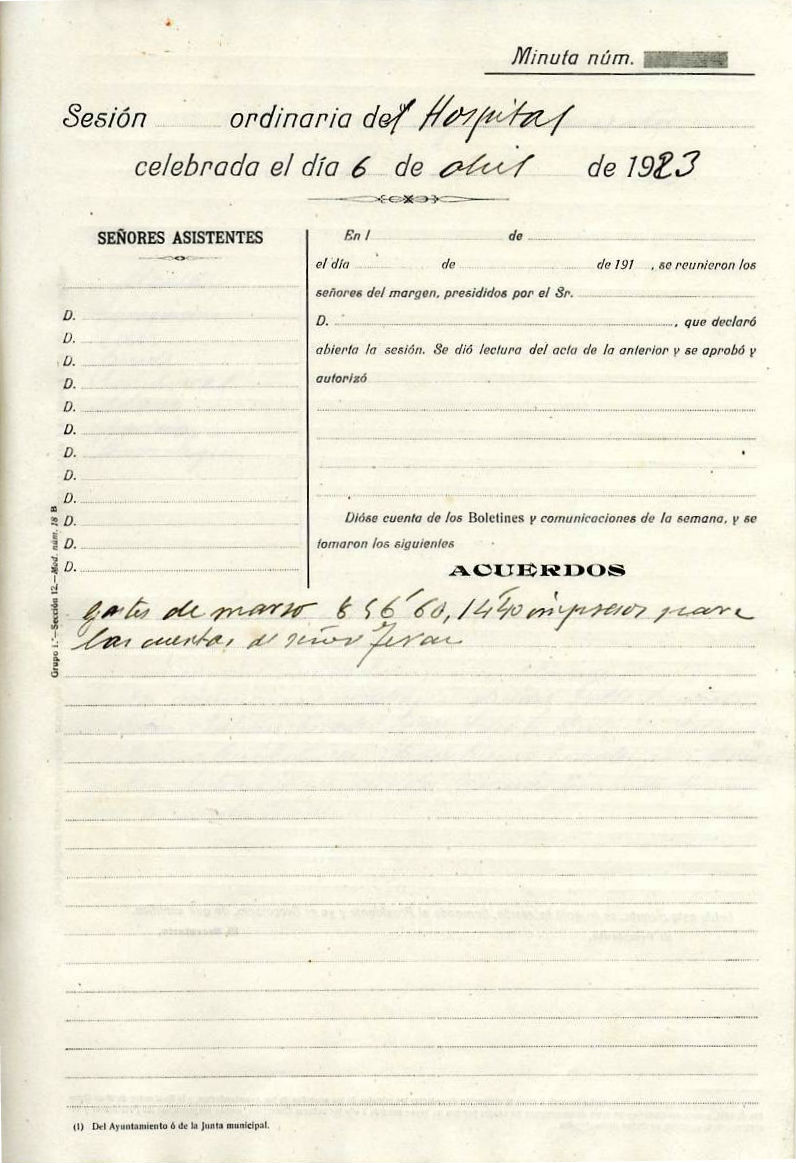 Minuta núm.
Sesión ordinaria del Hospital
celebrada el día 6 de abril de 1923
SEÑORES ASISTENTES
D.
D.
D.
D.
D.
D.
D.
D.
D.
D.
D.
D.
En l de
el día de de 191 , se reunieron los
señores del margen, presididos por el Sr.
D. , que declaró
abierta la sesión. Se dió lectura del acta de la anterior y se aprobó y
autorizó
Dióse cuenta de los Boletines y comunicaciones de la semana, y se
tomaron los siguientes
ACUERDOS
gastos de marzo 856'60, 14'40 impresos para
las cuentas de señor
Grupo 1.º—Sección 12.—Mod. núm. 18 B
(1) Del Ayuntamiento ó de la Junta municipal.